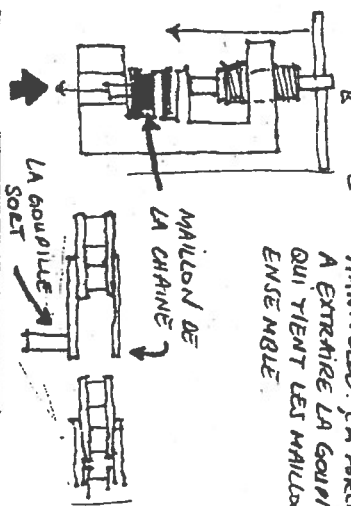 A EXTRAIRE LA GOUPI
QUI TIENT LES MAILLO
ENSEMBLE.
MAILLON DE
LA CHAINE
LA GOUPILLE
SORT